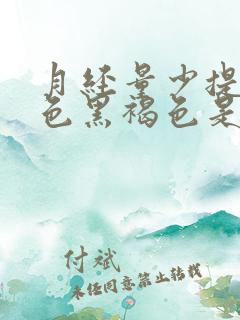 月经量少提
色黑褐色是
付斌
未经同意禁止转载